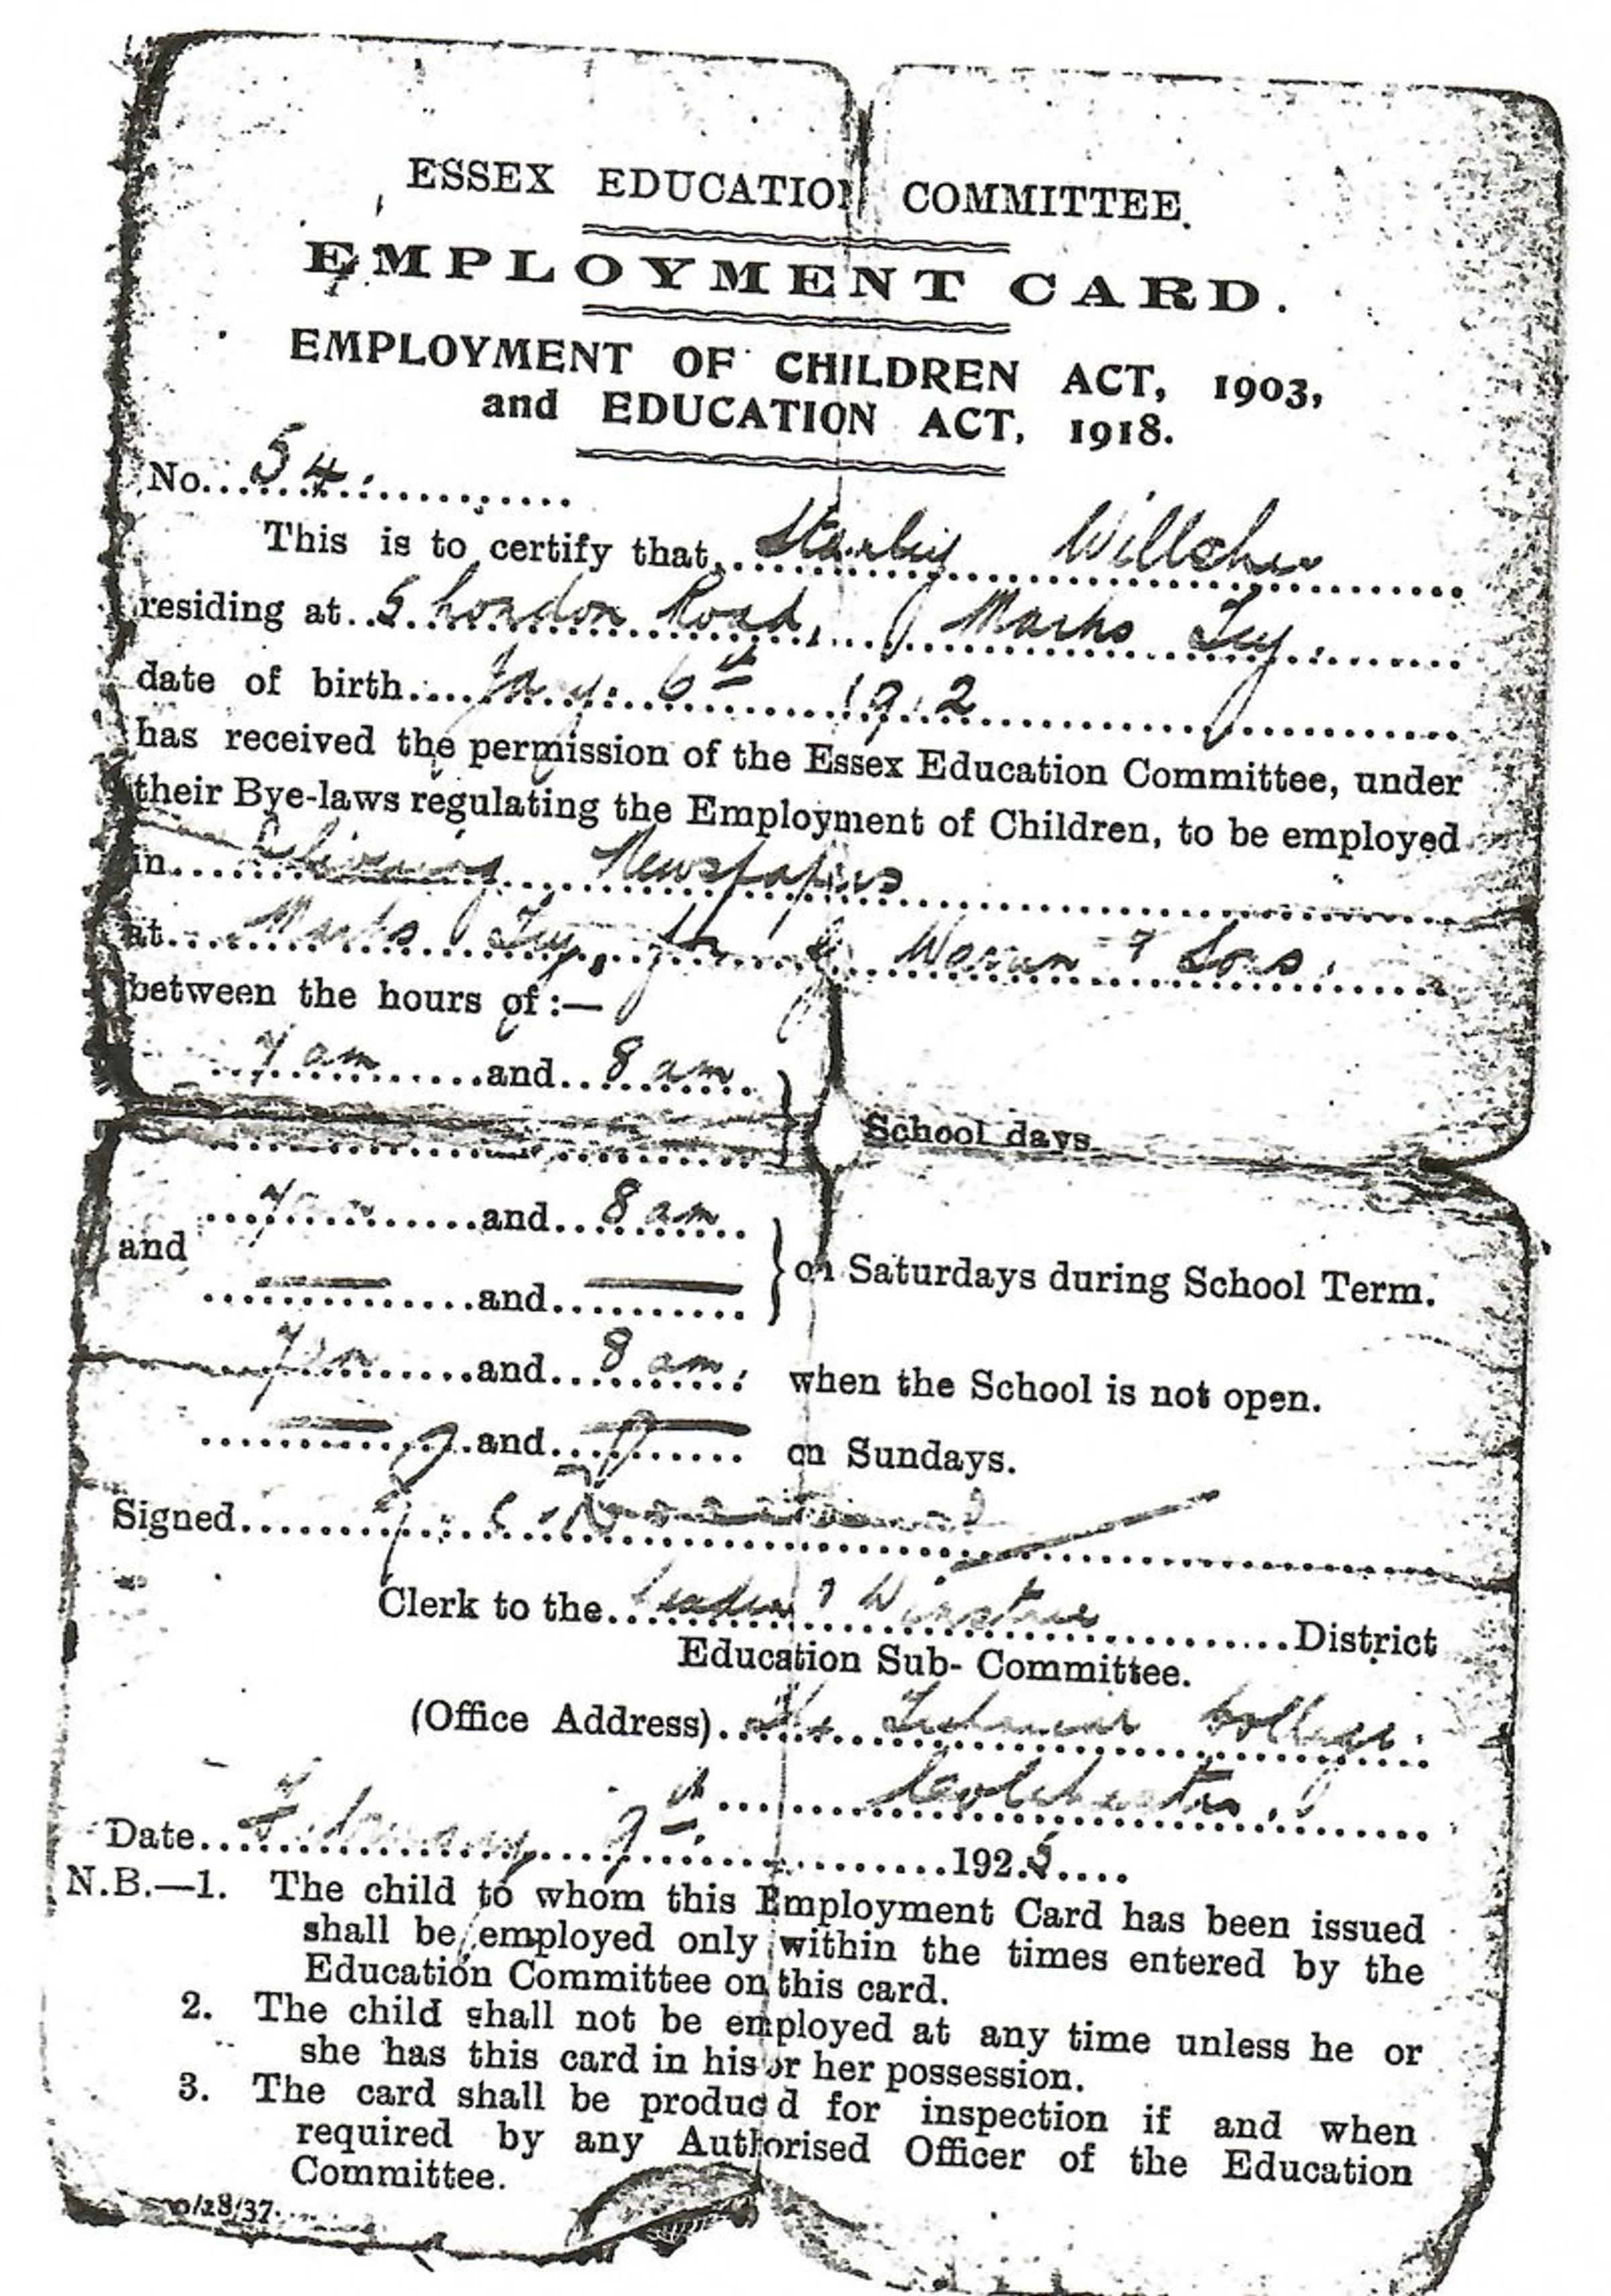 ESSEX EDUCATION COMMITTEE.
EMPLOYMENT CARD.
EMPLOYMENT OF CHILDREN ACT, 1903,
and EDUCATION ACT, 1918.
No. 54.
This is to certify that Stanley Willsher
residing at 5 London Road, Marks Tey.
date of birth Jany. 6th 1912
has received the permission of the Essex Education Committee, under
their Bye-laws regulating the Employment of Children, to be employed
in Delivering Newspapers
at Marks Tey, for Warren & Sons.
between the hours of:—
7 am and 8 am
School days
7 am and 8 am
and
and on Saturdays during School Term.
7 am and 8 am. when the School is not open.
and on Sundays.
Signed
Clerk to the Lexden & Winstree District
Education Sub-Committee.
(Office Address) The Technical College.
Colchester.
Date February 9th 1925
N.B.—1. The child to whom this Employment Card has been issued
shall be employed only within the times entered by the
Education Committee on this card.
2. The child shall not be employed at any time unless he or
she has this card in his or her possession.
3. The card shall be produced for inspection if and when
required by any Authorised Officer of the Education
Committee.